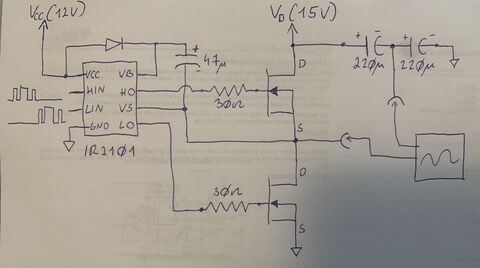 Vcc(12V)
VD(15V)
+
-
+
-
220µ
220µ
+
-
47µ
VCC
VB
HIN
HO
LIN
VS
GND
LO
IR2101
30Ω
D
S
30Ω
D
S